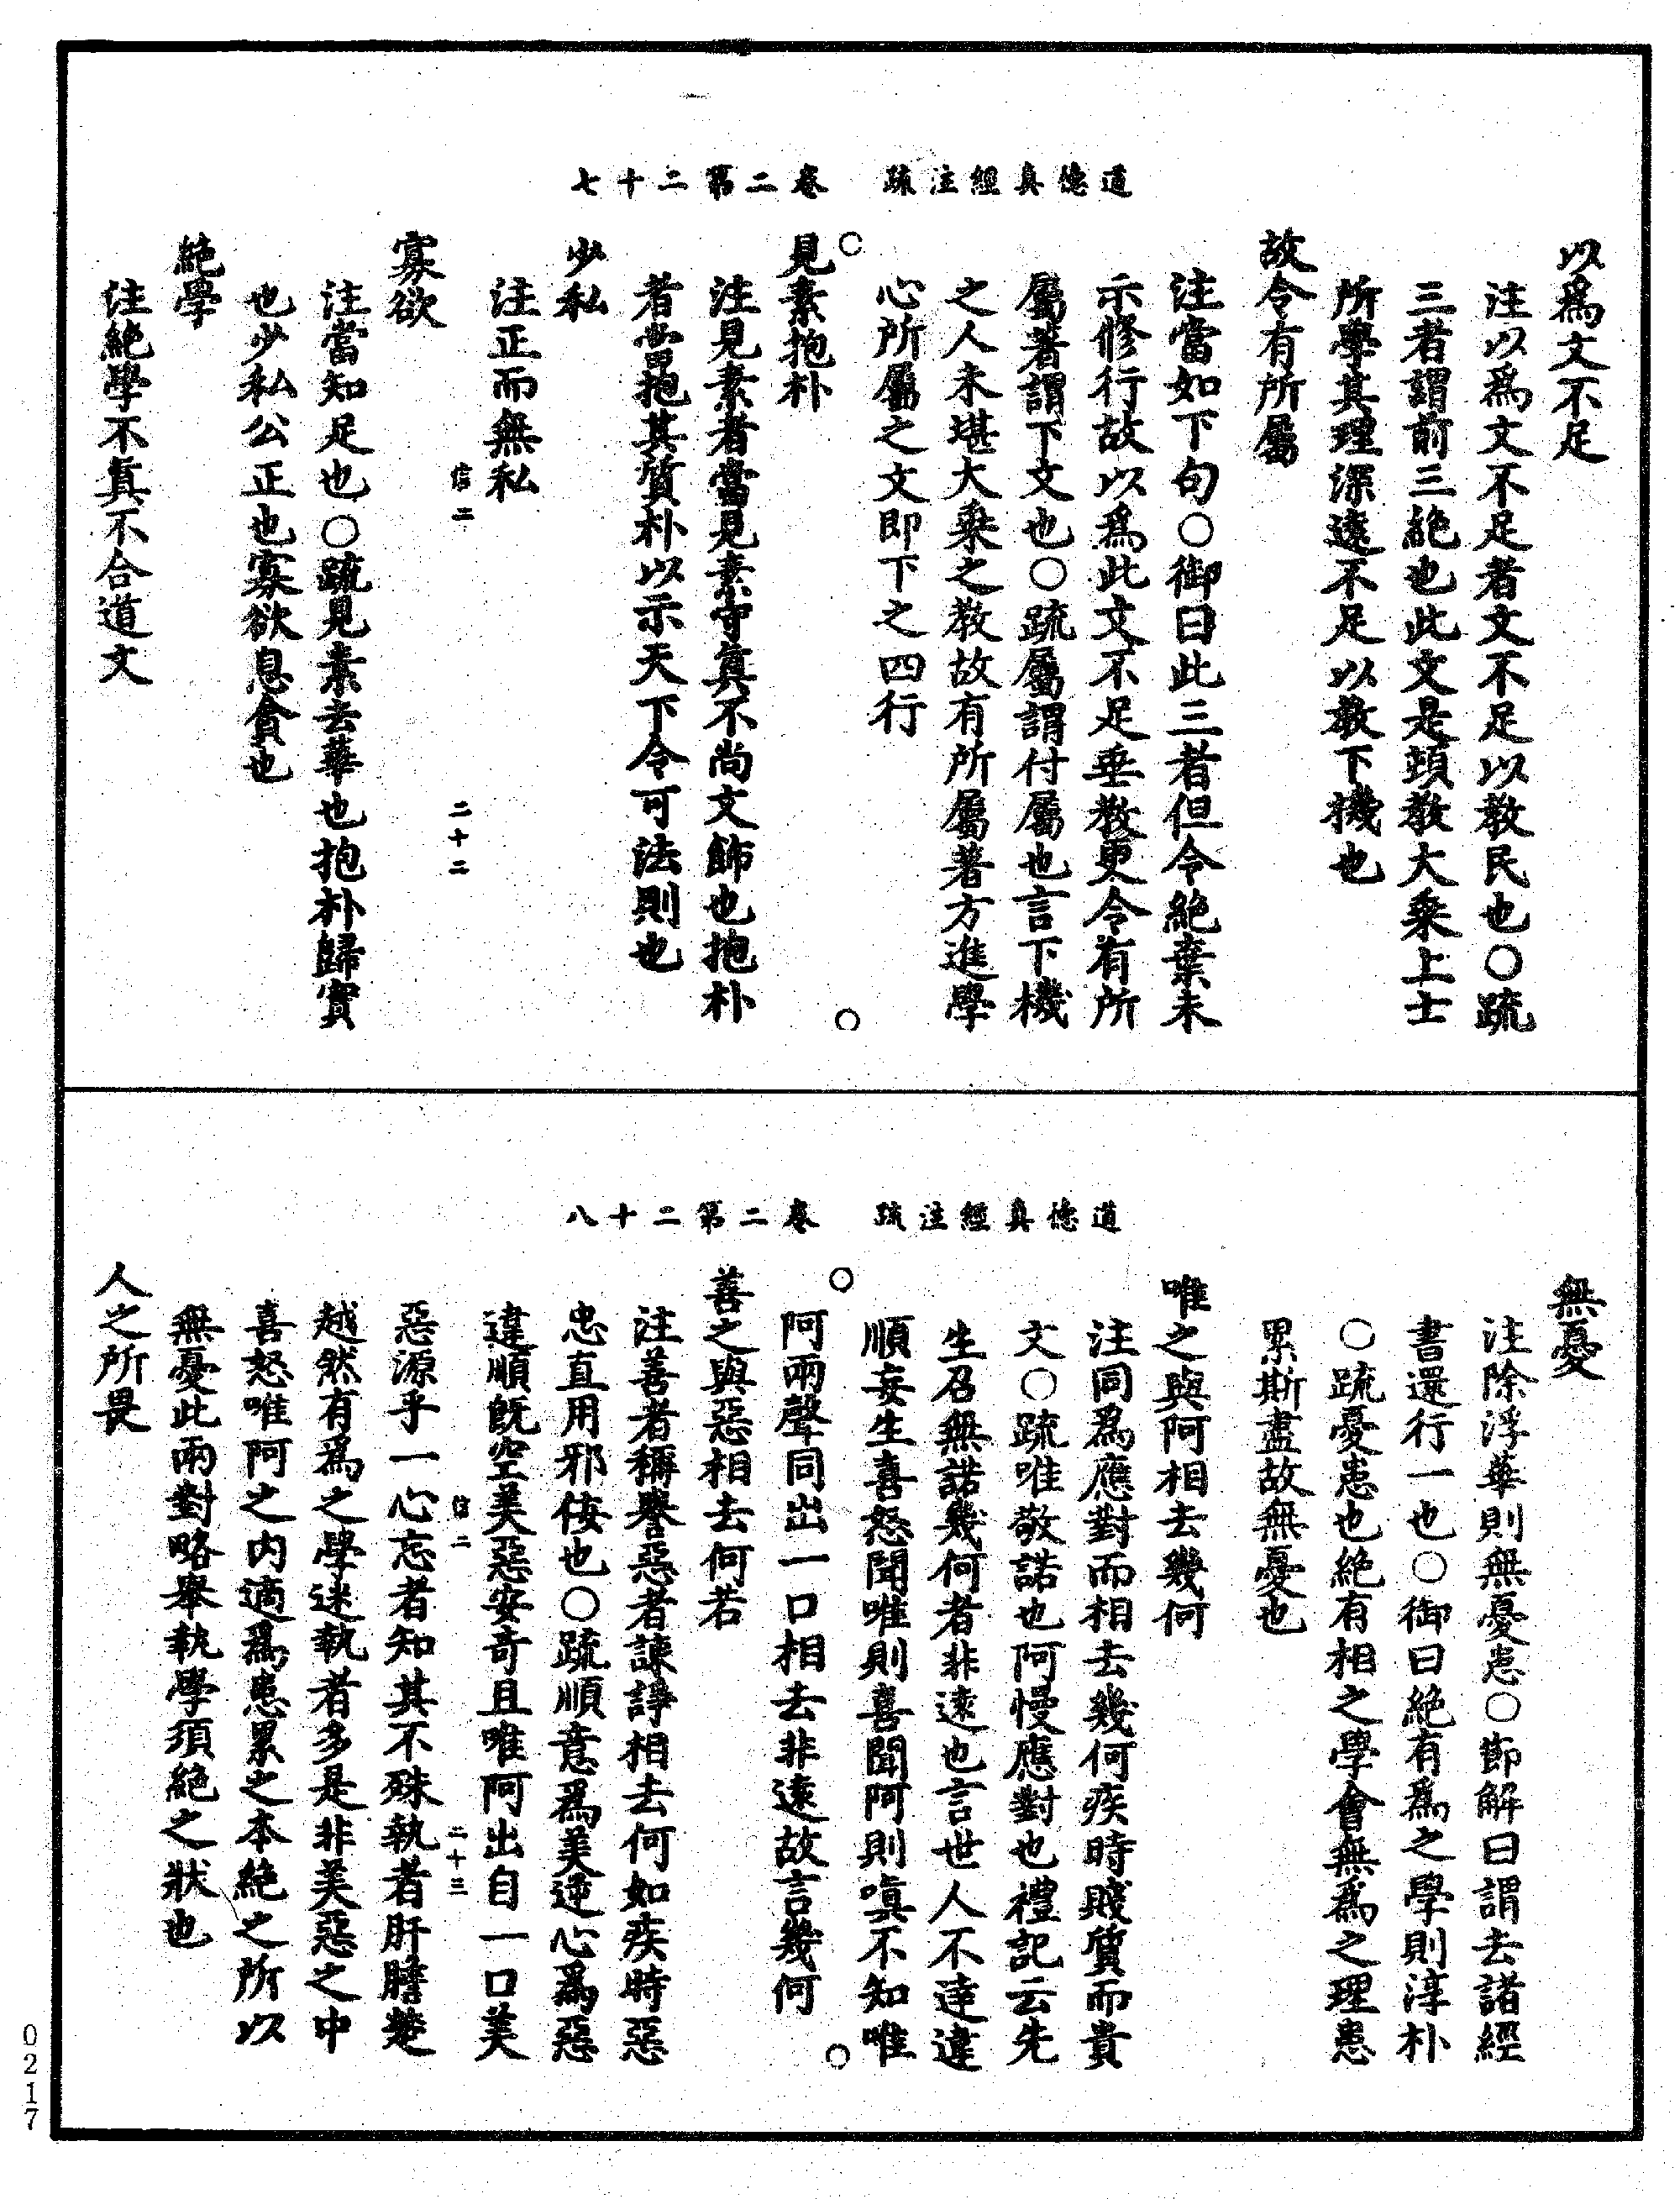 道德真經注疏　卷二第二十七
以爲文不足
注以爲文不足者文不足以教民也〇疏
三者謂前三絶也此文是頭教大乘上士
所學其理深遠不足以教下機也
故令有所屬
注當如下句〇御曰此三者但令絶棄未
示修行故以爲此文不足垂教更令有所
屬著謂下文也〇疏屬謂付屬也言下機
之人未堪大乘之教故有所屬著方進學
心所屬之文即下之四行
見素抱朴
注見素者當見素守真不尚文飾也抱朴
者當抱其質朴以示天下令可法則也
少私
注正而無私
信二　二十二
寡欲
注當知足也〇疏見素去華也抱朴歸實
也少私公正也寡欲息貪也
絶學
注絶學不真不合道文
道德真經注疏　卷二第二十八
無憂
注除浮華則無憂患〇節解曰謂去諸經
書還行一也〇御曰絶有爲之學則淳朴
〇疏憂患也絶有相之學會無爲之理患
累斯盡故無憂也
唯之與阿相去幾何
注同爲應對而相去幾何疾時賤質而貴
文〇疏唯敬諾也阿慢應對也禮記云先
生召無諾幾何者非遠也言世人不達違
順妄生喜怒聞唯則喜聞阿則嗔不知唯
阿兩聲同出一口相去非遠故言幾何
善之與惡相去何若
注善者稱譽惡者諫諍相去何如疾時惡
忠直用邪佞也〇疏順意爲美逆心爲惡
違順既空美惡安寄且唯阿出自一口美
信二　二十三
惡源乎一心忘者知其不殊執者肝膽楚
越然有爲之學迷執者多是非美惡之中
喜怒唯阿之内適爲患累之本絶之所以
無憂此兩對略舉執學須絶之狀也
人之所畏
0217